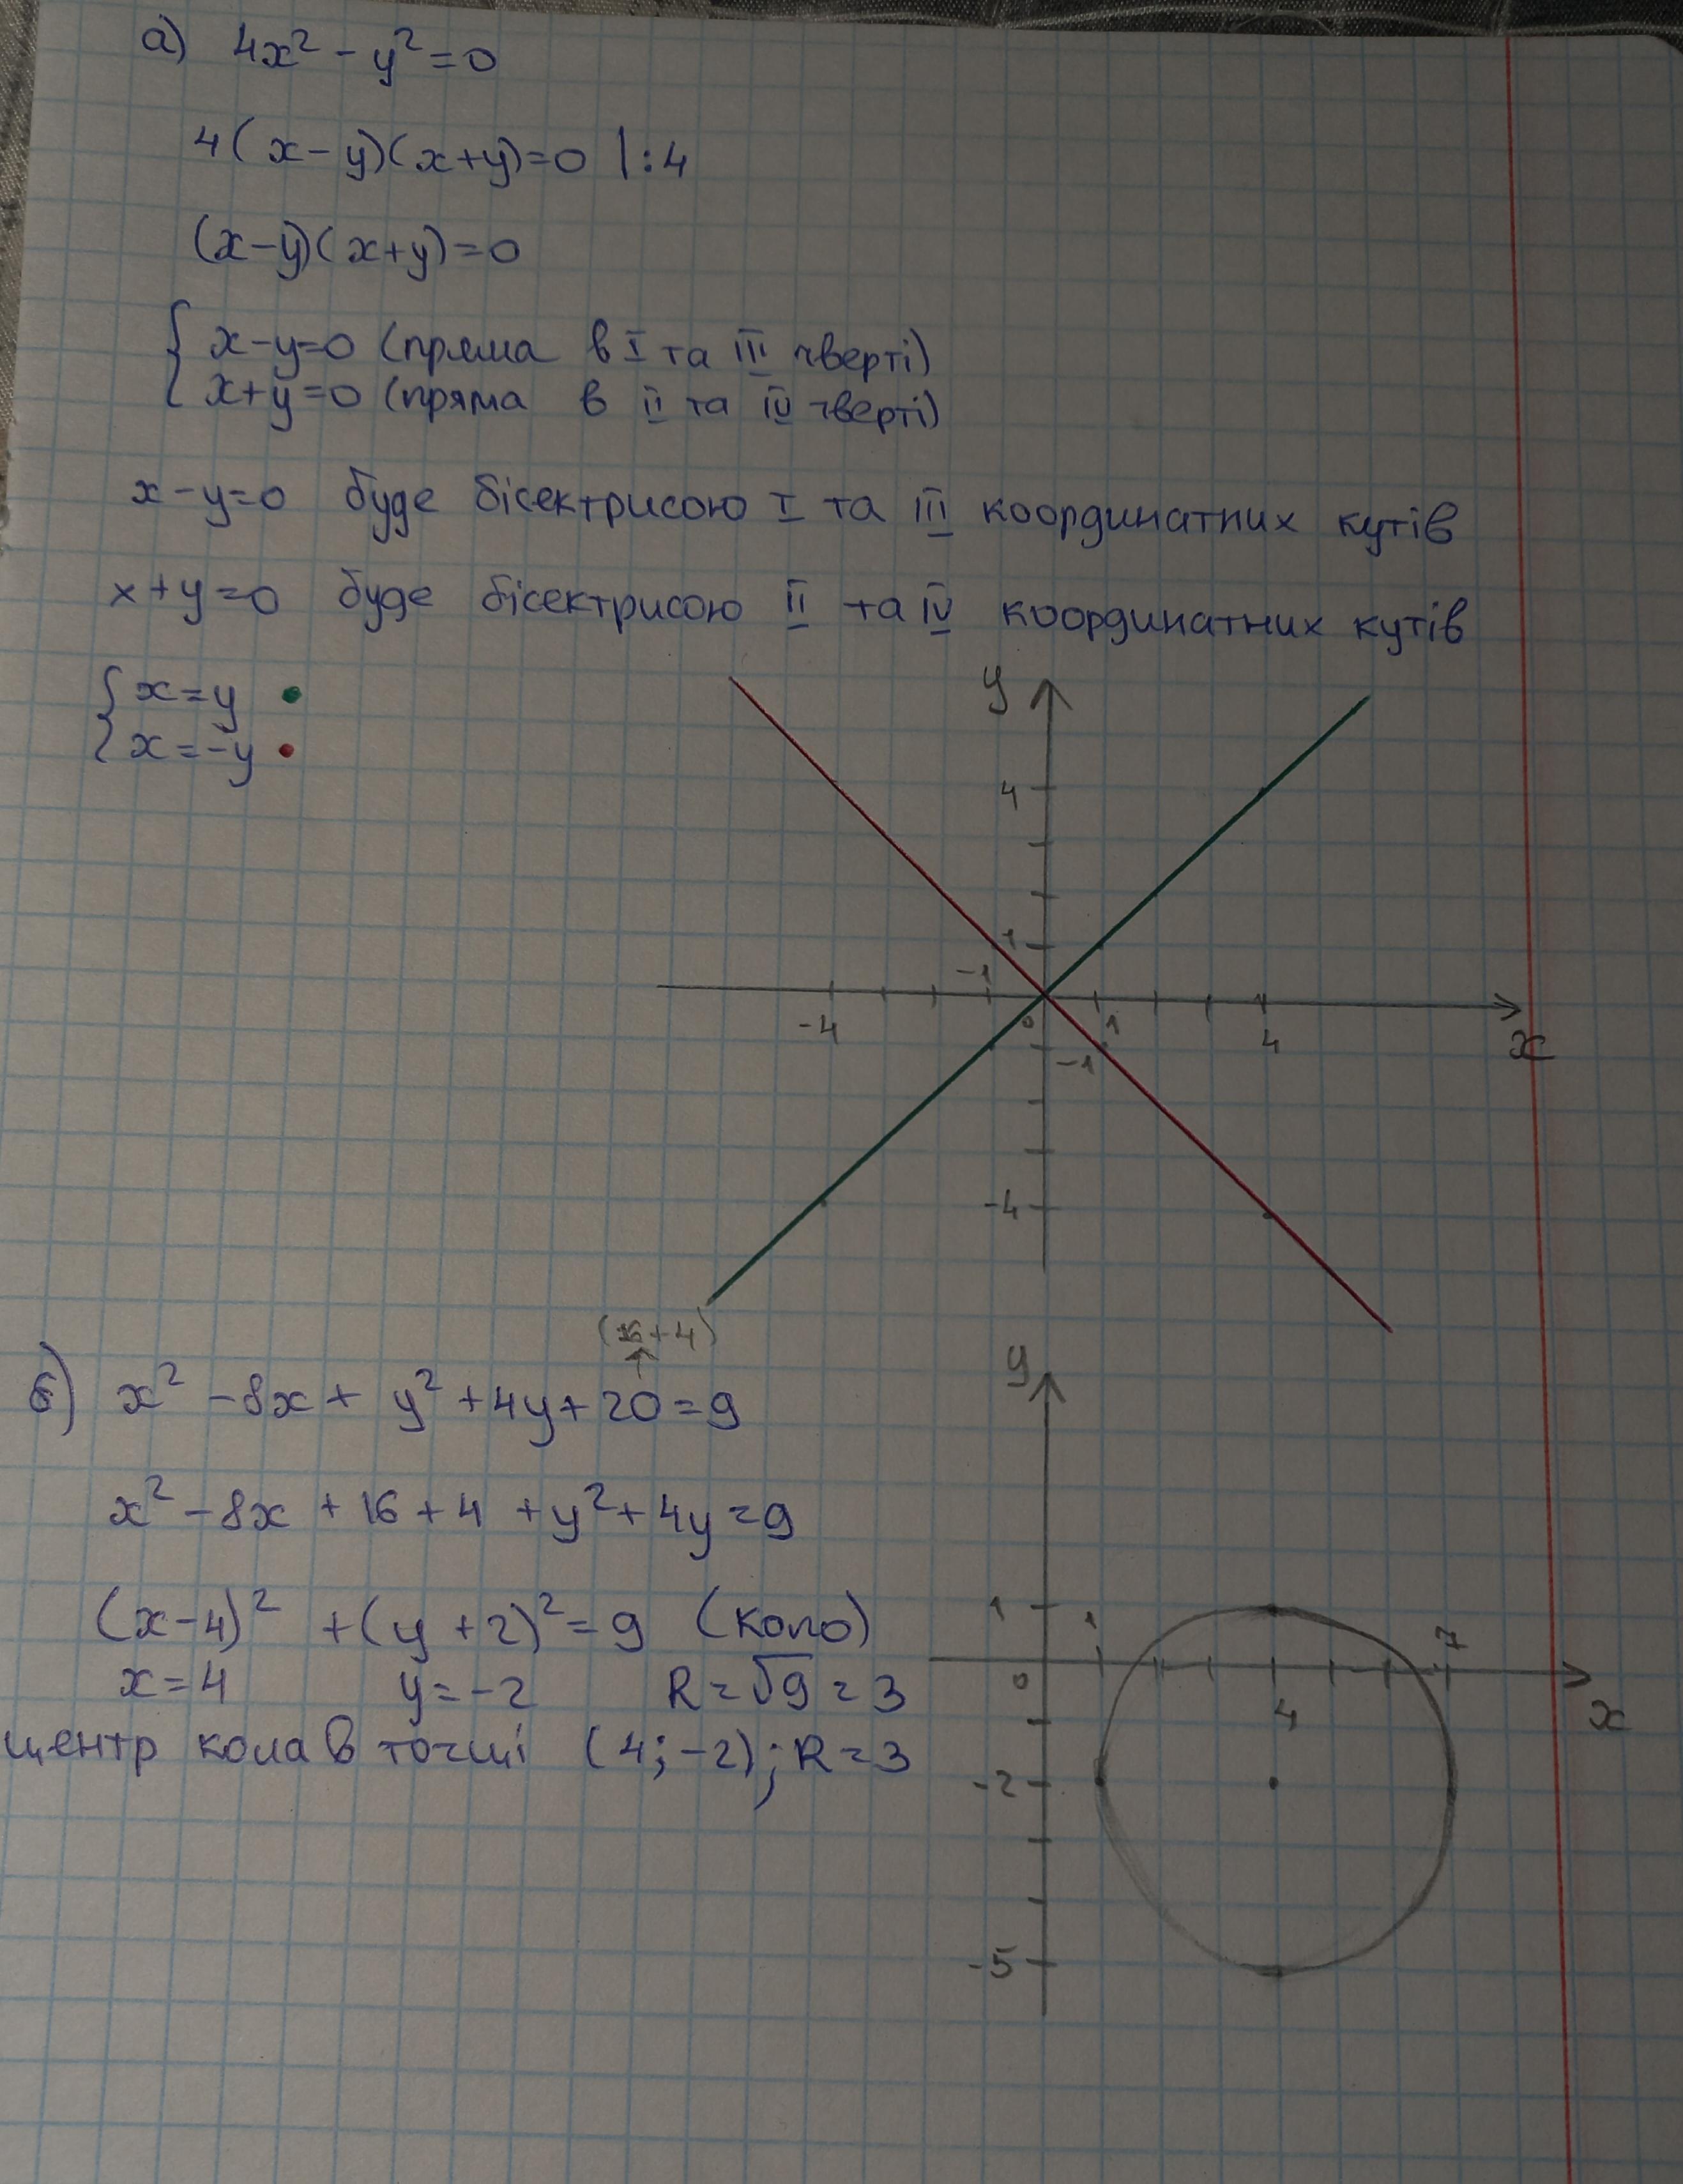 а) 4x² - y² = 0
4(x-y)(x+y)=0 |:4
(x-y)(x+y)=0
{ x-y=0 (пряма в I та III чверті)
{ x+y=0 (пряма в II та IV чверті)
x-y=0 буде бісектрисою I та III координатних кутів
x+y=0 буде бісектрисою II та IV координатних кутів
{ x=y
{ x=-y
y
4
1
-1
-4
0
1
4
x
-1
-4
(16+4)
↑
б) x² -8x + y² +4y+20=9
x² -8x +16+4 +y²+4y=9
(x-4)² +(y+2)²=9 (коло)
x=4 y=-2 R=√9=3
центр кола в точці (4;-2); R=3
y
1
1
7
0
4
x
-2
-5